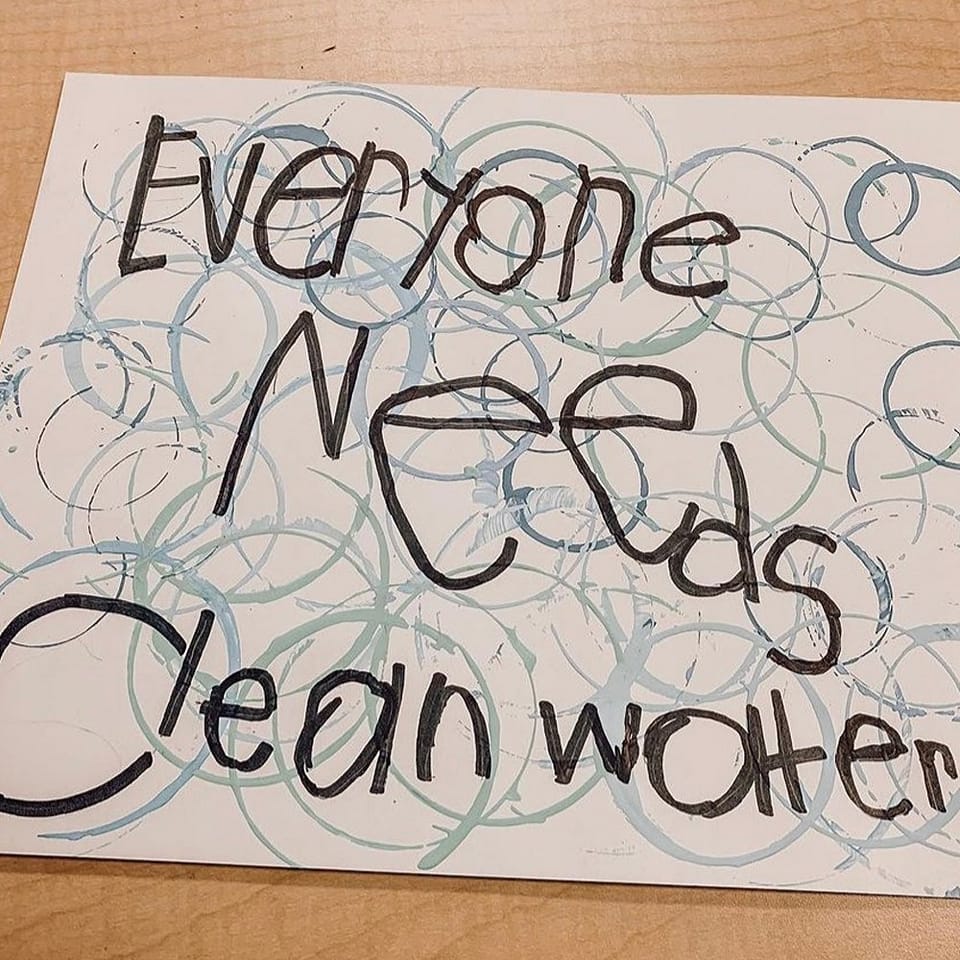 Everyone
Needs
Clean water